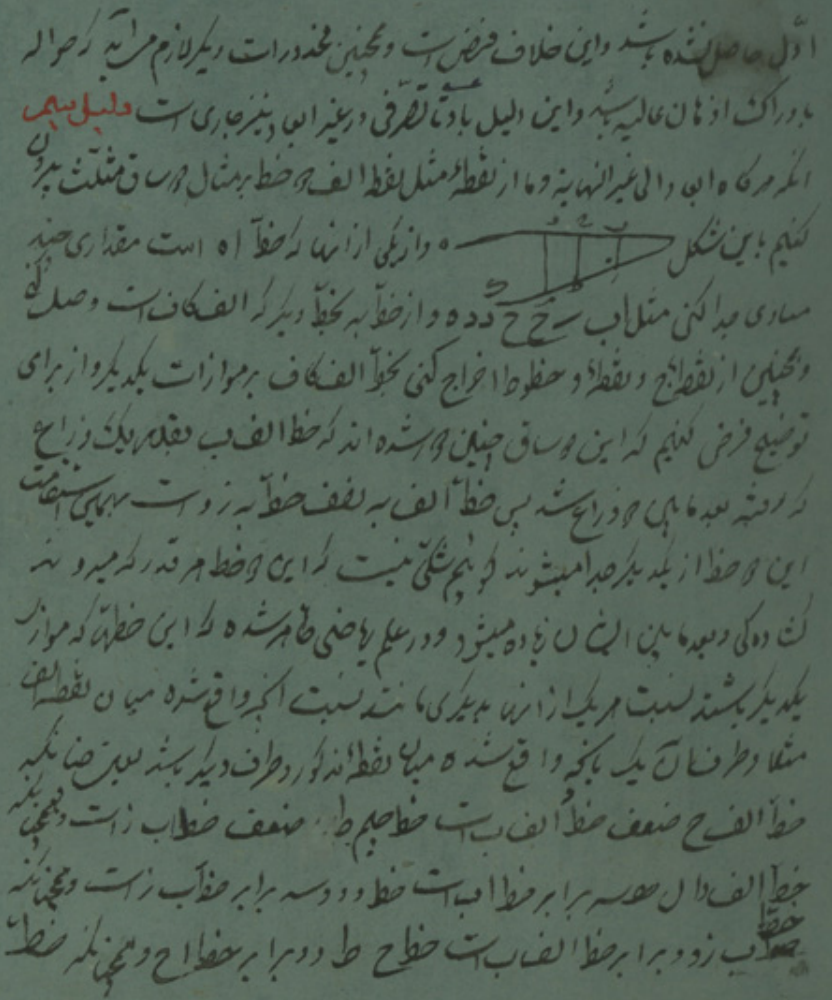 اول حاصل نشده باشد و این خلاف فرض است و همچنین محذورات دیگر لازم می آید که حواله
بادراک اذهان عالیه شد و این دلیل بادنا تصرفی در غیر ابعاد نیز جاری است دلیل سیم
آنکه هرگاه ابعاد الی غیر النهایة و ما از نقطهٔ مثل نقطه الف دو خط بر مثال دو ساق مثلث بیرون
کنیم باین شکل ه و از یکی از اینها که خط آ ه است مقداری چند
مساوی جدا کنی مثل اب ب ج ج د د ه و از خط به بخط دیگر که الف کاف است وصل کنی
و همچنین از نقطه ج و نقطه د خطوط اخراج کنی بخط الف کاف بر موازات یکدیگر و از برای
توضیح فرض کنیم که این دو ساق چنین جدا شده اند که خط الف ب بقدر یک ذراع
که رفته بعد مابین دو ذراع شد پس خط الف به نصف خط به ز و است بهمین استقامت
این دو خط از یکدیگر جدا میشوند گوییم شکی نیست که این دو خط هر قدر که میروند
گشادگی و بعد مابین ایشان زیاده میشود و در علم ریاضی ظاهر شده که این خطها که موازی
یکدیگر باشند نسبت هر یک از اینها بدیگری مانند نسبت آنچه واقع شده میان نقطه الف
مثلا و طرفشان یک بآنچه واقع شده میان نقطه مذکور و طرف دیگر باشد یعنی چنانکه
خط الف ج ضعف خط الف ب است خط جیم ط ضعف خط ب ز است و همچنانکه
خط الف دال سه برابر خط اب است خط د و سه برابر خط ب ز است و همچنانکه
خط ب ز دو برابر خط الف ب است خط ج ط دو برابر خط ا ج و همچنانکه خط